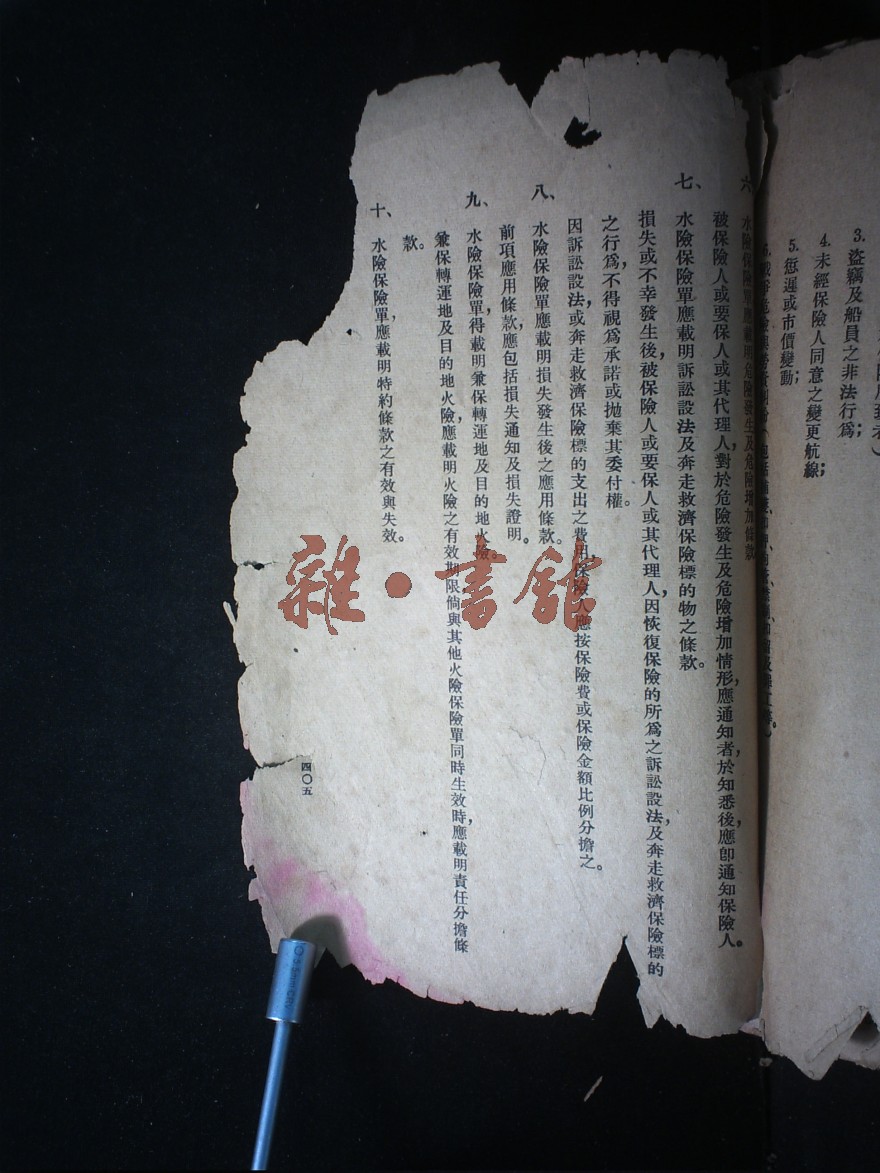 3. 盜竊及船員之非法行爲;
4. 未經保險人同意之變更航線;
5. 遲或市價變動;
六、水險保險單應載明危險發生及危險增加條款
被保險人或要保人或其代理人,對於危險發生及危險增加情形,應通知者,於知悉後,應卽通知保險人。
七、水險保險單應載明訴訟設法及奔走救濟保險標的物之條款。
損失或不幸發生後,被保險人或要保人或其代理人,因恢復保險的所爲之訴訟設法及奔走救濟保險標的
之行爲,不得視爲承諾或拋棄其委付權。
因訴訟設法,或奔走救濟保險標的支出之費用,保險人應按保險費或保險金額比例分擔之。
八、水險保險單應載明損失發生後之應用條款。
前項應用條款,應包括損失通知及損失證明。
九、水險保險單,得載明兼保轉運地及目的地火險。
兼保轉運地及目的地火險,應載明火險之有效期限倘與其他火險保險單同時生效時,應載明責任分擔條
款。
十、水險保險單,應載明特約條款之有效與失效。
四〇五
雜·書館